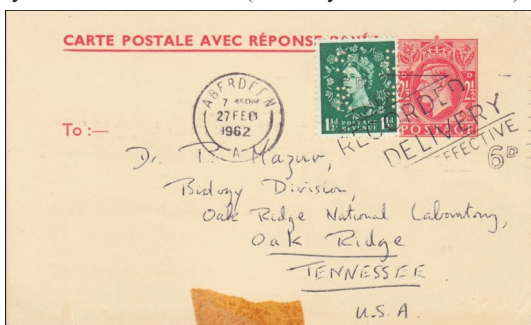 CARTE POSTALE AVEC RÉPONSE
ABERDEEN
7 45PM
27 FEB
1962
A
1½ᴰ POSTAGE REVENUE 1½ᴰ
POSTAGE
RECORDED
DELIVERY
EFFECTIVE
6ᴰ
To :—
Dr. P. Mazur,
Biology Division,
Oak Ridge National Laboratory,
Oak Ridge
TENNESSEE
U.S.A.